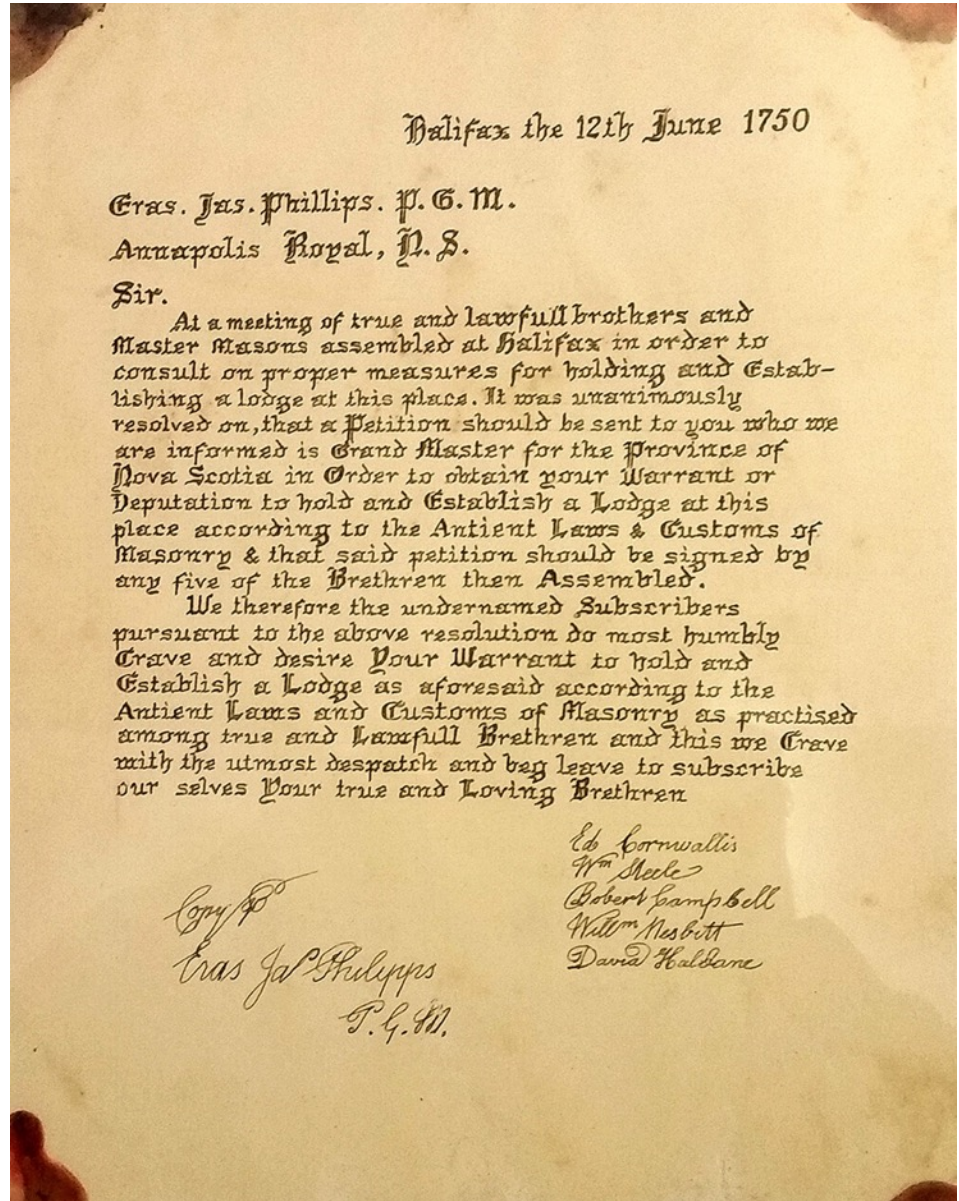 Halifax the 12th June 1750
Eras. Jas. Phillips. P. G. M.
Annapolis Royal, N. S.
Sir.
At a meeting of true and lawfull brothers and
Master Masons assembled at Halifax in order to
consult on proper measures for holding and Estab-
lishing a lodge at this place. It was unanimously
resolved on, that a Petition should be sent to you who we
are informed is Grand Master for the Province of
Nova Scotia in Order to obtain your Warrant or
Deputation to hold and Establish a Lodge at this
place according to the Antient Laws & Customs of
Masonry & that said petition should be signed by
any five of the Brethren then Assembled.
We therefore the undernamed Subscribers
pursuant to the above resolution do most humbly
Crave and desire Your Warrant to hold and
Establish a Lodge as aforesaid according to the
Antient Laws and Customs of Masonry as practised
among true and Lawfull Brethren and this we Crave
with the utmost despatch and beg leave to subscribe
our selves Your true and Loving Brethren
Ed Cornwallis
Wm Steele
Robert Campbell
Willm Nesbitt
David Haldane
Copy
Eras Jas Philipps
P. G. M.